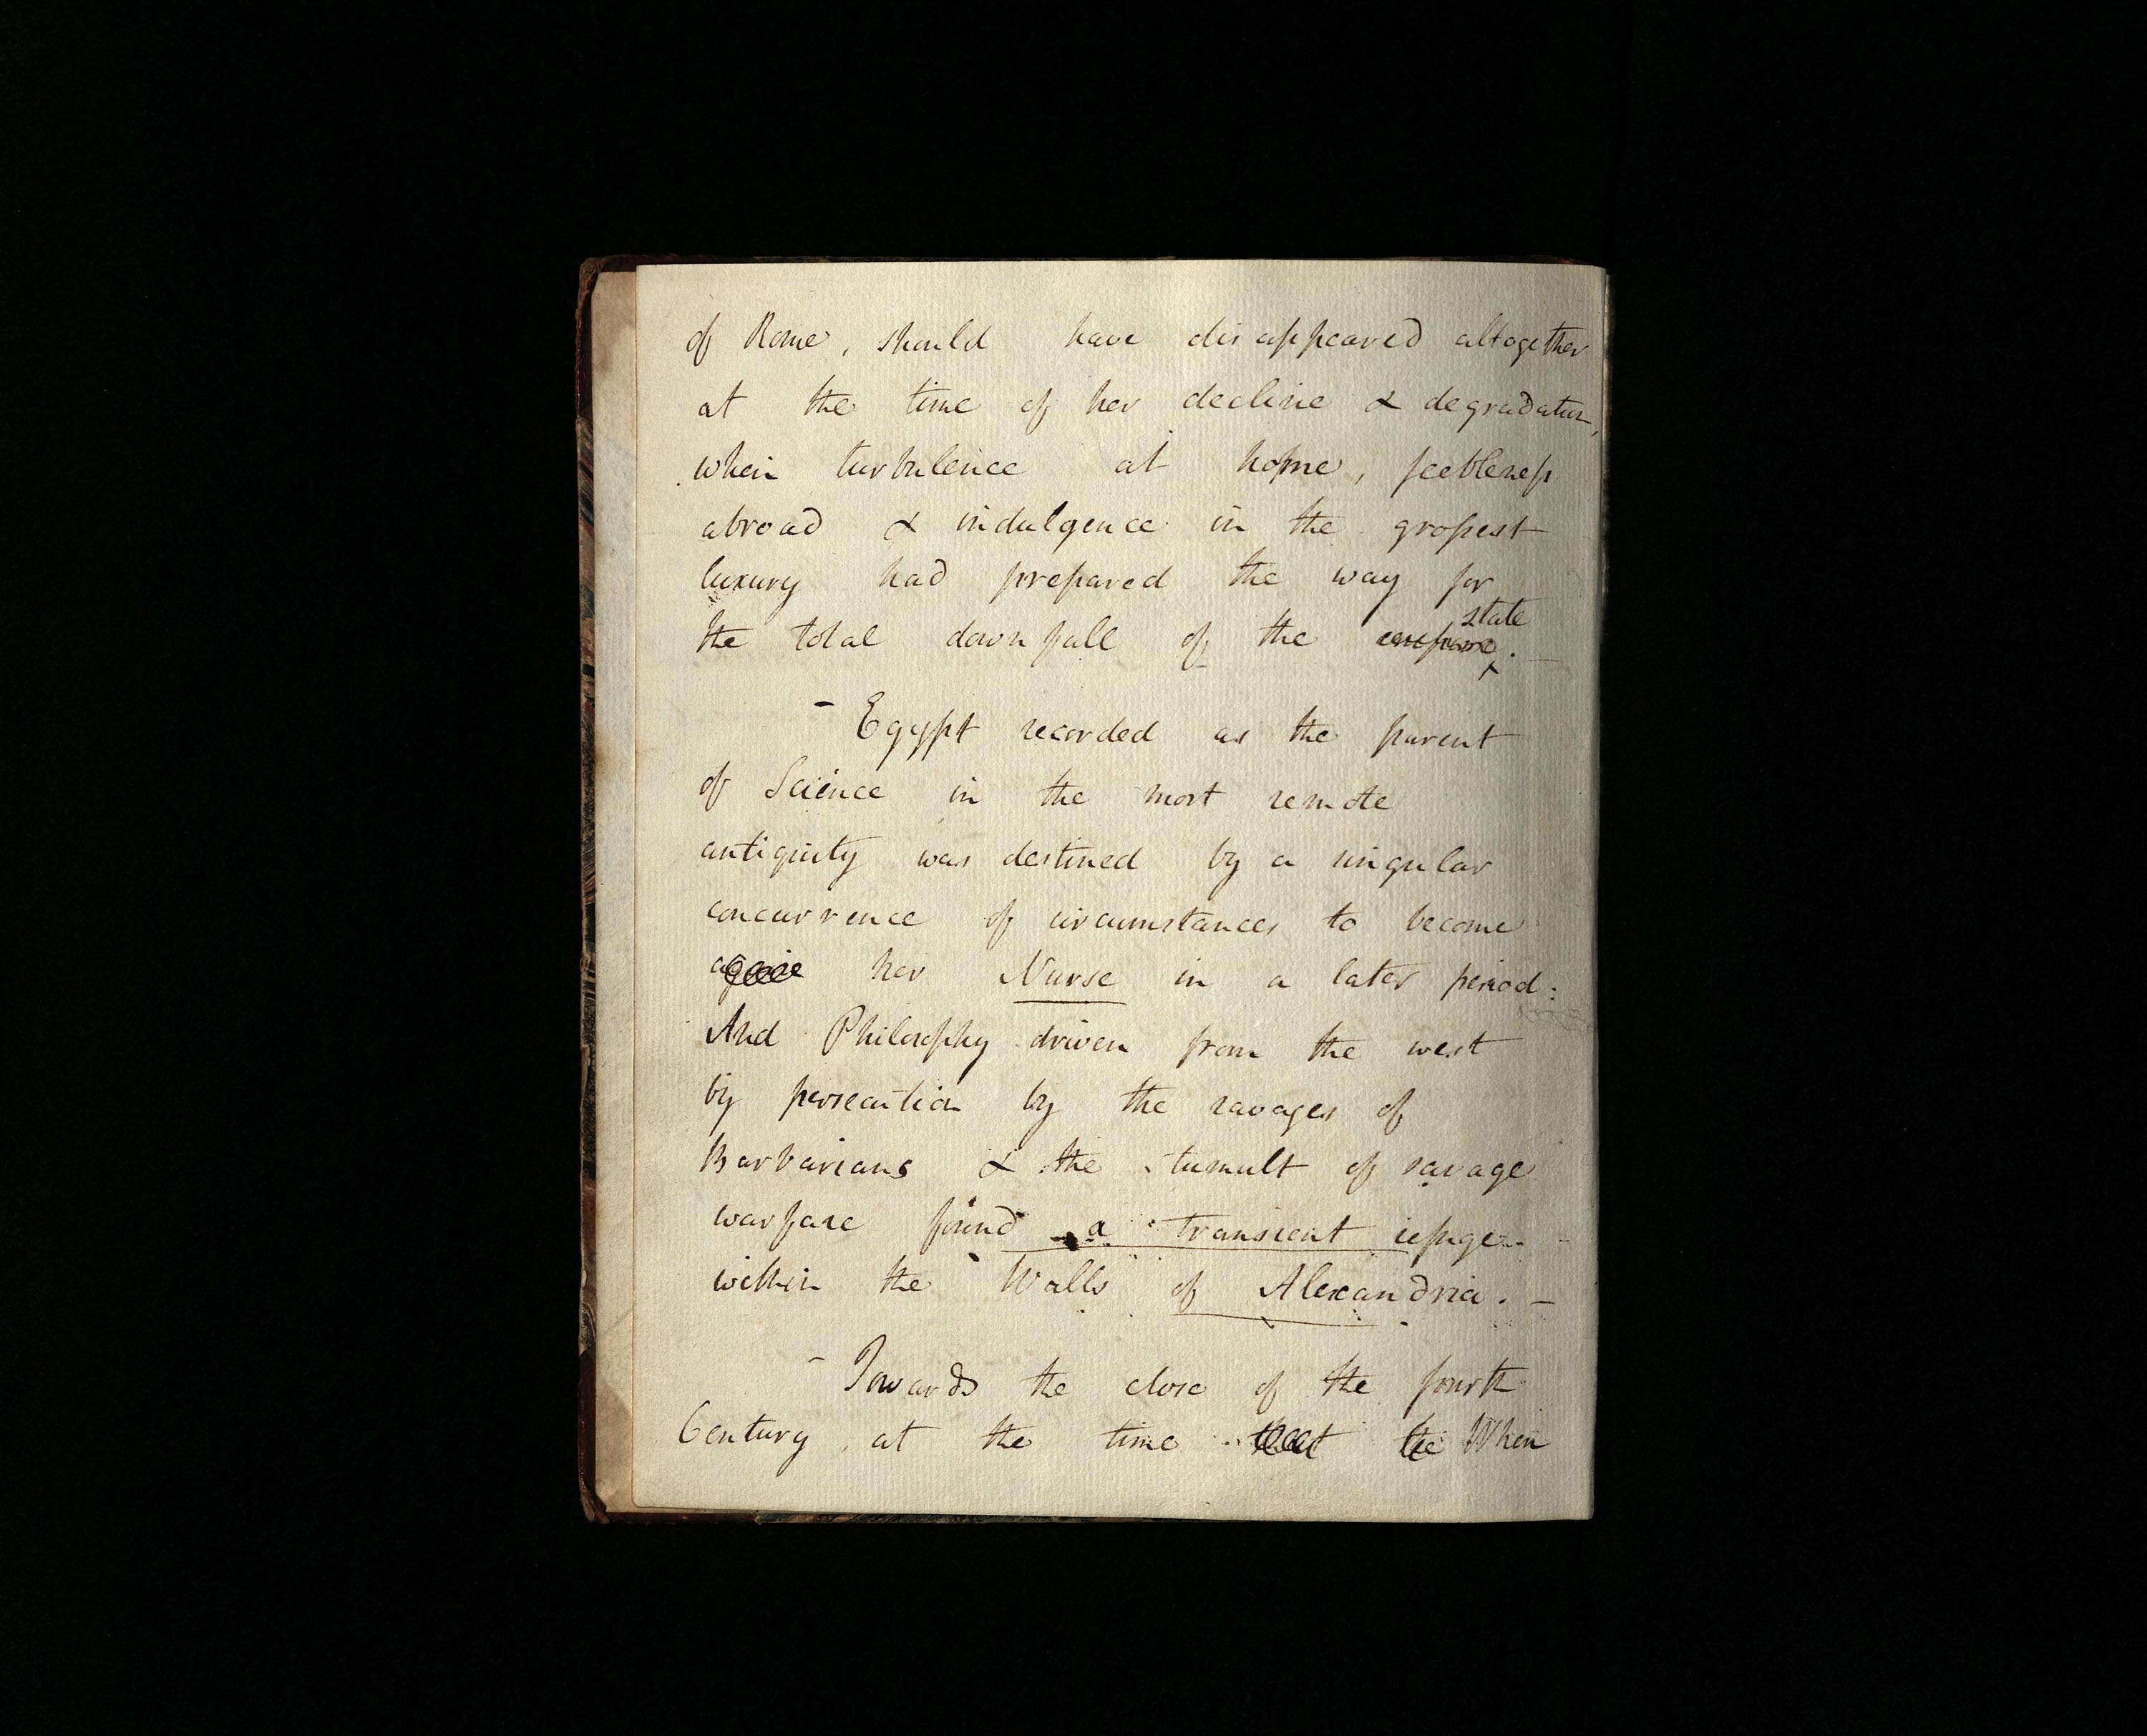 of Rome, should have disappeared altogether
at the time of her decline & degradation,
when turbulence at home, feebleness
abroad & indulgence in the grossest
luxury had prepared the way for
state
the total downfall of the empire.
- Egypt recorded as the parent
of Science in the most remote
antiquity was destined by a singular
concurrence of circumstances to become
again her Nurse in a later period:
And Philosophy driven from the west
by persecution by the ravages of
Barbarians & the tumult of savage
warfare found a transient refuge
within the Walls of Alexandria. -
- Towards the close of the fourth
Century at the time that the When